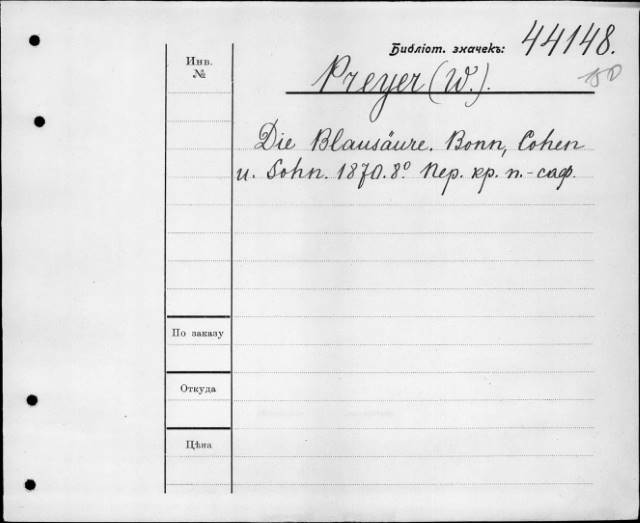 Библіот. значекъ: 44148.
Инв. №
Preyer (W.).
Die Blausäure. Bonn, Cohen
u. Sohn. 1870. 8º Пер. кр. п.-саф.
По заказу
Откуда
Цѣна